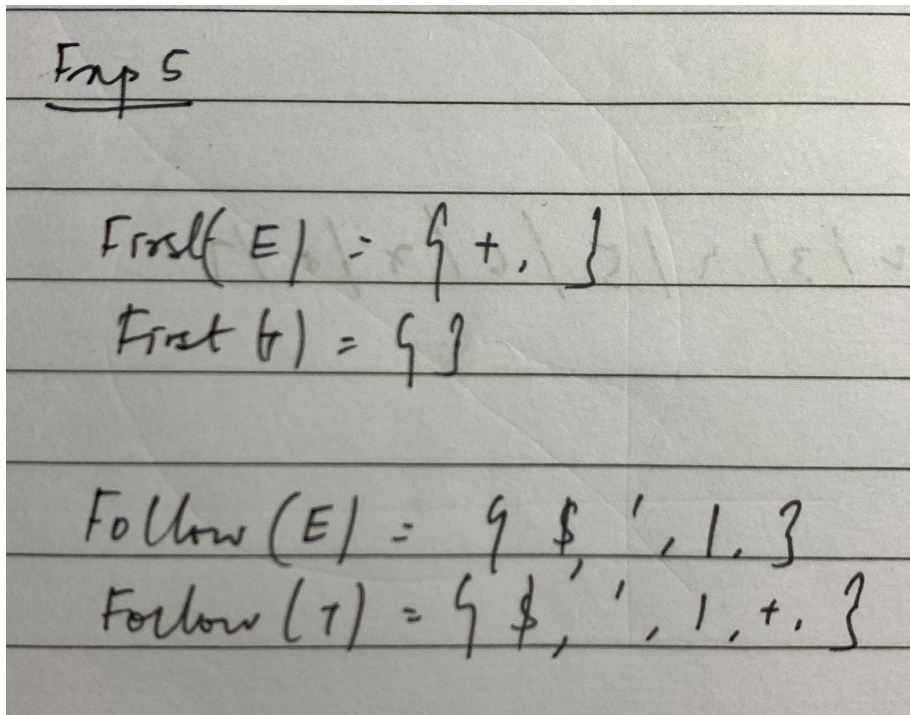 Exp 5
First(E) = { +, }
First(T) = { }
Follow(E) = { $, ', ', ), }
Follow(T) = { $, ', ', ), +, }